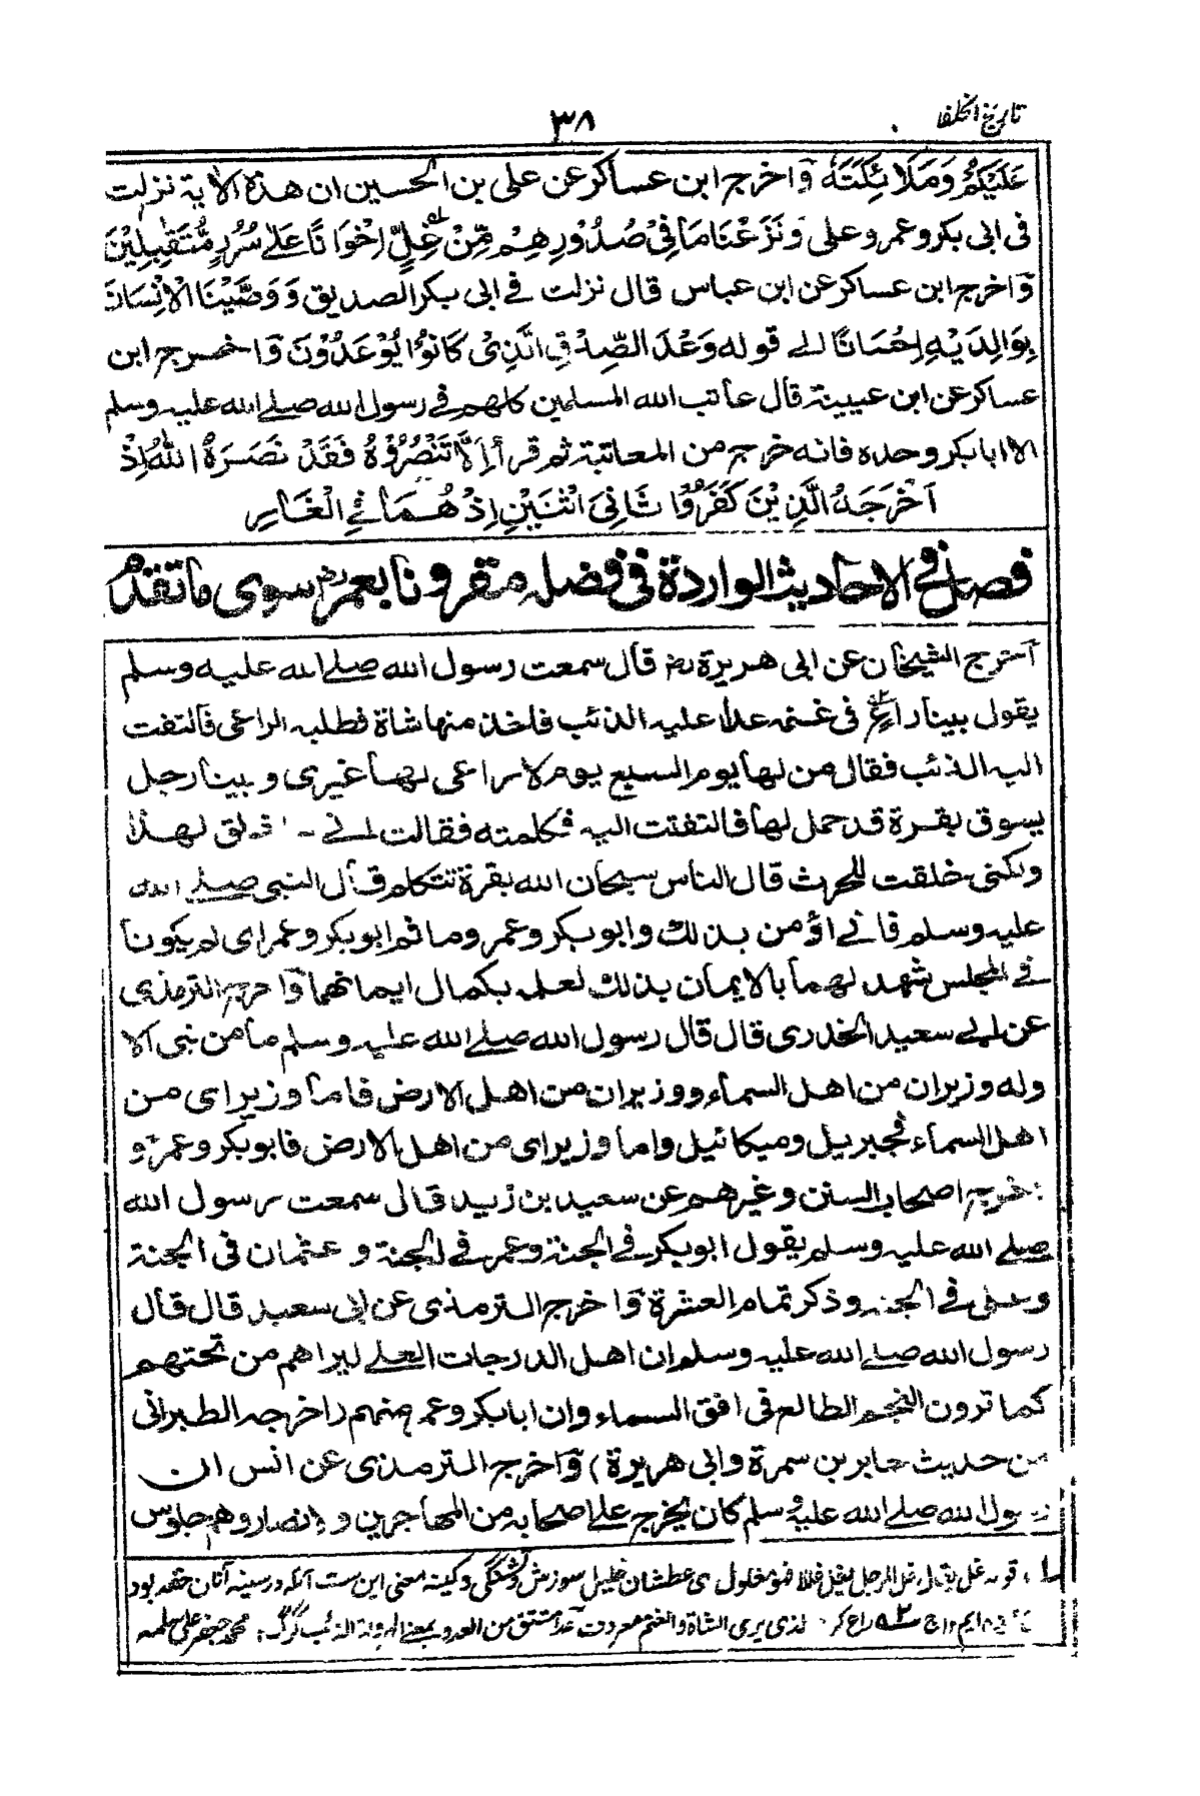 تاريخ الخلفا
٣٨
عَلَيْكُمْ وَمَلَائِكَتُهُ وَاخرج ابن عساكر عن على بن الحسين ان هذه الآية نزلت
فى ابى بكر وعمر وعلى وَنَزَعْنَا مَا فِىْ صُدُوْرِهِمْ مِّنْ غِلٍّ اِخْوَانًا عَلٰے سُرُرٍ مُّتَقٰبِلِيْنَ
وَاخرج ابن عساكر عن ابن عباس قال نزلت فے ابى بكر الصديق وَوَصَّيْنَا الْاِنْسَانَ
بِوَالِدَيْهِ اِحْسَانًا الے قوله وَعْدَ الصِّدْقِ الَّذِىْ كَانُوْا يُوْعَدُوْنَ وَاخرج ابن
عساكر عن ابن عيينة قال عاتب الله المسلمين كلهم فے رسول الله صلے الله عليه وسلم
الا ابا بكر وحده فانه خرج من المعاتبة ثم قرأ اِلَّا تَنْصُرُوْهُ فَقَدْ نَصَرَهُ اللّٰهُ اِذْ
اَخْرَجَهُ الَّذِيْنَ كَفَرُوْا ثَانِىَ اثْنَيْنِ اِذْ هُمَا فِے الْغَارِ
فصل فى الاحاديث الواردة فى فضله مقرونا بعمر رض سوى ما تقدم
اَخرج الشيخان عن ابى هريرة رض قال سمعت رسول الله صلے الله عليه وسلم
يقول بينا راعٍ فى غنمه عدا عليه الذئب فاخذ منها شاة فطلبه الراعى فالتفت
اليه الذئب فقال من لها يوم السبع يوم لا راعى لها غيرى وبينا رجل
يسوق بقرة قد حمل لها فالتفتت اليه فكلمته فقالت انے لم اخلق لهذا
ولكنى خلقت للحرث قال الناس سبحان الله بقرة تتكلم قال النبى صلے الله
عليه وسلم فانے اؤمن بذلك وابو بكر وعمر وما ثم ابو بكر وعمر اى لم يكونا
فے المجلس شهد لهما بالايمان بذلك لعلمه بكمال ايمانهما وَاخرج الترمذى
عن ابے سعيد الخدرى قال قال رسول الله صلے الله عليه وسلم ما من نبى الا
وله وزيران من اهل السماء ووزيران من اهل الارض فاما وزيراى من
اهل السماء فجبريل وميكائيل واما وزيراى من اهل الارض فابو بكر وعمر وَ
اخرج اصحاب السنن وغيرهم عن سعيد بن زيد قال سمعت رسول الله
صلے الله عليه وسلم يقول ابو بكر فے الجنة وعمر فے الجنة وعثمان فى الجنة
وعلى فے الجنة وذكر تمام العشرة وَاخرج الترمذى عن ابى سعيد قال قال
رسول الله صلے الله عليه وسلم ان اهل الدرجات العلے ليراهم من تحتهم
كما ترون النجم الطالع فى افق السماء وان ابا بكر وعمر منهم (اخرجه الطبرانى
من حديث جابر بن سمرة وابى هريرة) وَاخرج الترمذى عن انس ان
رسول الله صلے الله عليه وسلم كان يخرج علے اصحابه من المهاجرين والانصار وهم جلوس
قوله غل يقال غل الرجل يغل غلا فهو مغلول اى عطشان غليل سوزش وتشنگى وكينه معنى اين ست آنكه در سينه آنان حقد بود
راع كر الذى يرى الشاة والغنم معروف عدا مشتق من العدو بمعنے الهرولة الذئب گرگ محمد جعفر على سلمه